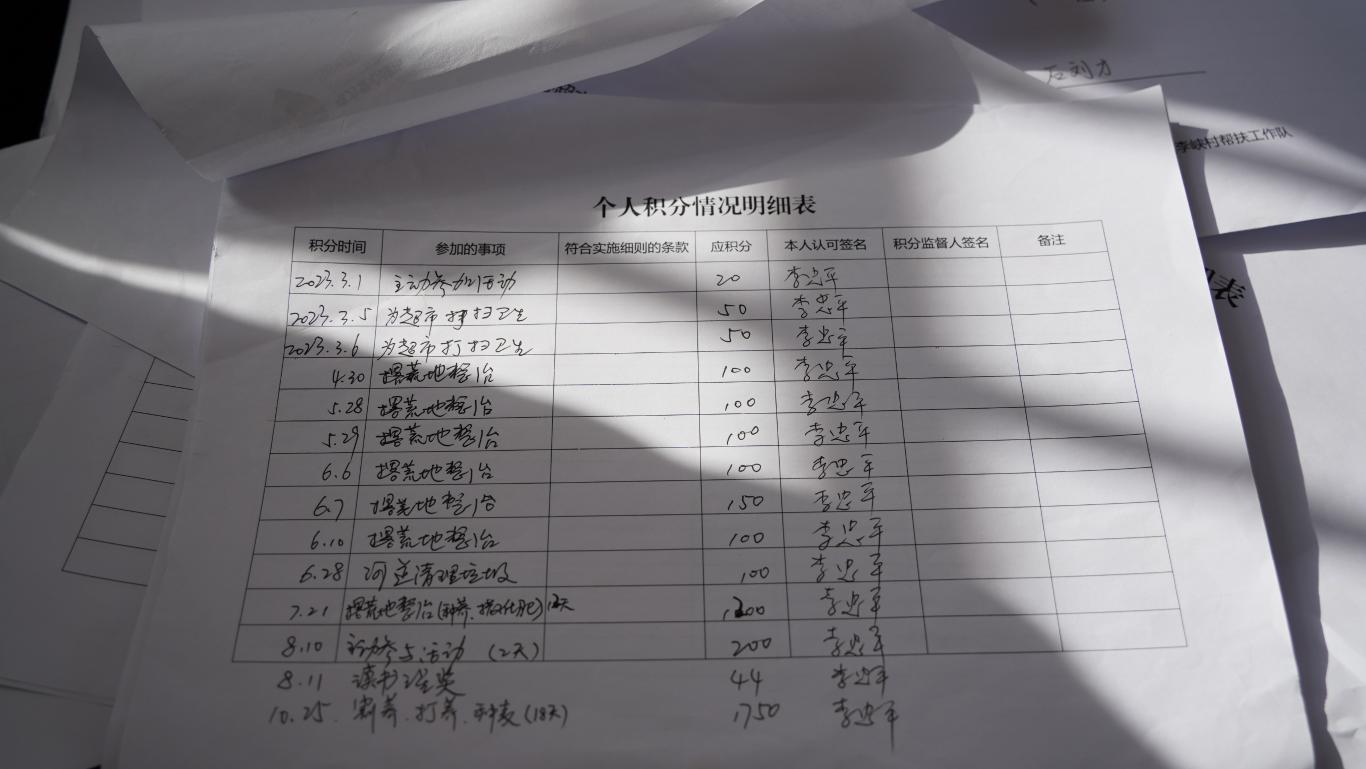 石刘才
李峡村帮扶工作队
表
个人积分情况明细表
积分时间 参加的事项 符合实施细则的条款 应积分 本人认可签名 积分监督人签名 备注
2023.3.1 主动参加活动 20 李忠军
2023.3.5 为超市打扫卫生 50 李忠军
2023.3.6 为超市打扫卫生 50 李忠军
4.30 撂荒地整治 100 李忠军
5.28 撂荒地整治 100 李忠军
5.29 撂荒地整治 100 李忠军
6.6 撂荒地整治 100 李忠军
6.7 撂荒地整治 150 李忠军
6.10 撂荒地整治 100 李忠军
6.28 河道清理垃圾 100 李忠军
7.21 撂荒地整治(种荞、撒化肥)12天 1200 李忠军
8.10 主动参与活动 (2天) 200 李忠军
8.11 读书 奖 44 李忠军
10.25. 割荞.打荞.种麦(18天) 1750 李忠军